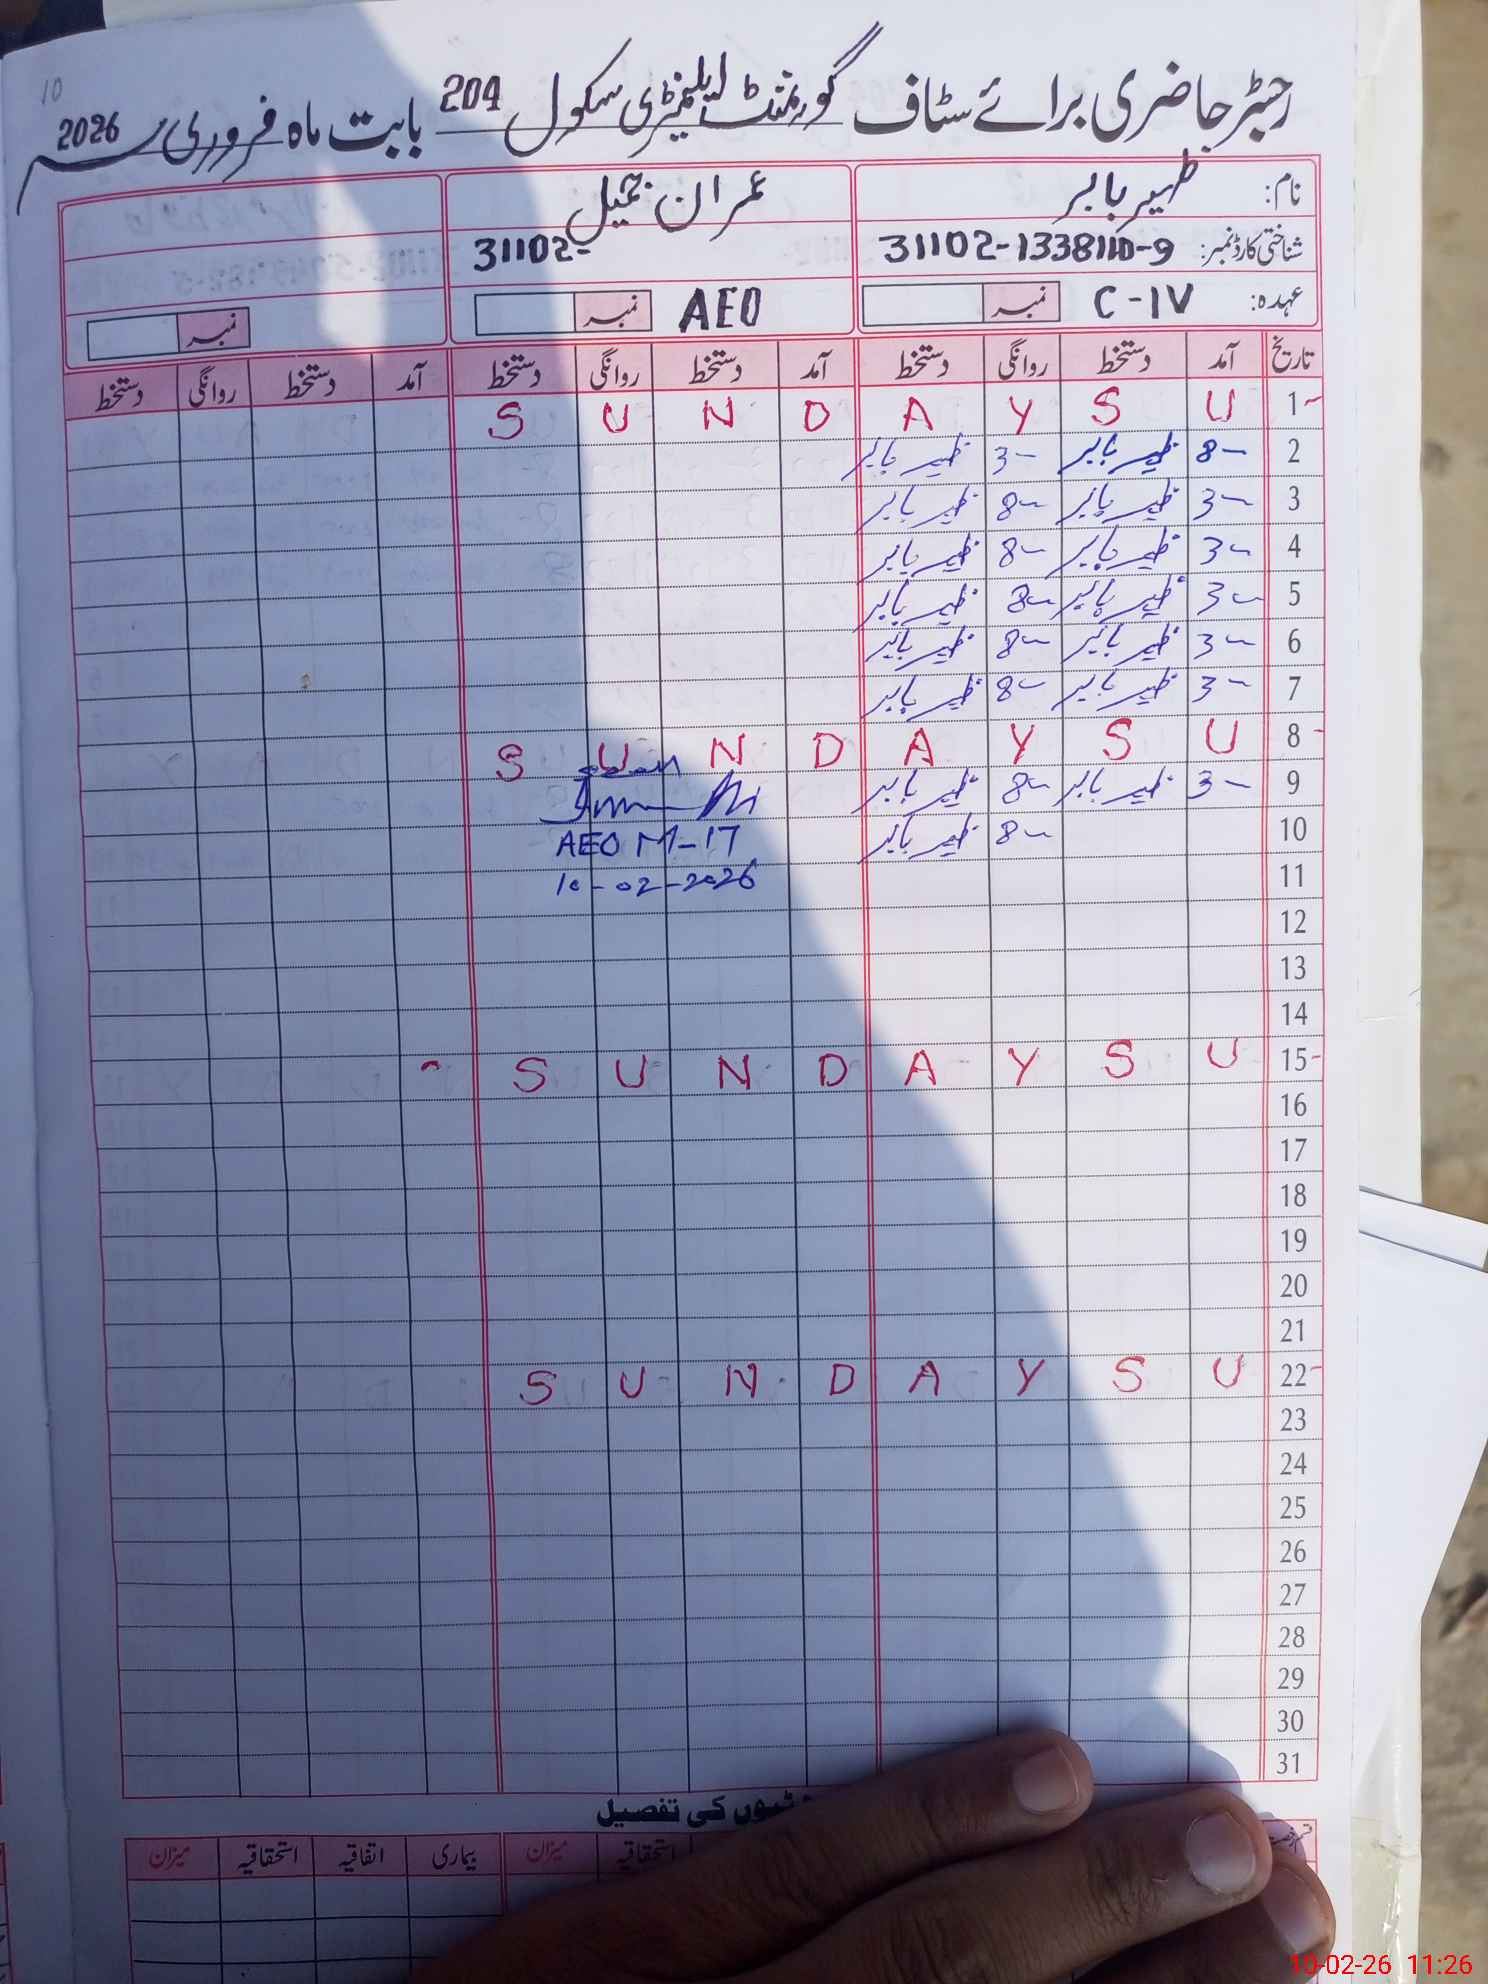 10
رجسٹر حاضری برائے سٹاف گورنمنٹ ایلیمنٹری سکول 204 بابت ماہ فروری 2026
نام: ظہیر بابر عمران جمیل
شناختی کارڈ نمبر: 31102-1338110-9 31102-
عہدہ: C-IV نمبر AEO نمبر نمبر
تاریخ آمد دستخط روانگی دستخط آمد دستخط روانگی دستخط آمد دستخط روانگی دستخط
1 U S Y A D N U S
2 8 ظہیر بابر 3 ظہیر بابر
3 3 ظہیر بابر 8 ظہیر بابر
4 3 ظہیر بابر 8 ظہیر بابر
5 3 ظہیر بابر 8 ظہیر بابر
6 3 ظہیر بابر 8 ظہیر بابر
7 3 ظہیر بابر 8 ظہیر بابر
8 U S Y A D N U S
9 3 ظہیر بابر 8 ظہیر بابر
10 8 ظہیر بابر AEO M-17
11 10-02-2026
12
13
14
15 U S Y A D N U S
16
17
18
19
20
21
22 U S Y A D N U S
23
24
25
26
27
28
29
30
31
کی تفصیل
استحقاقیہ میزان بیماری اتفاقیہ استحقاقیہ میزان
10-02-26 11:26